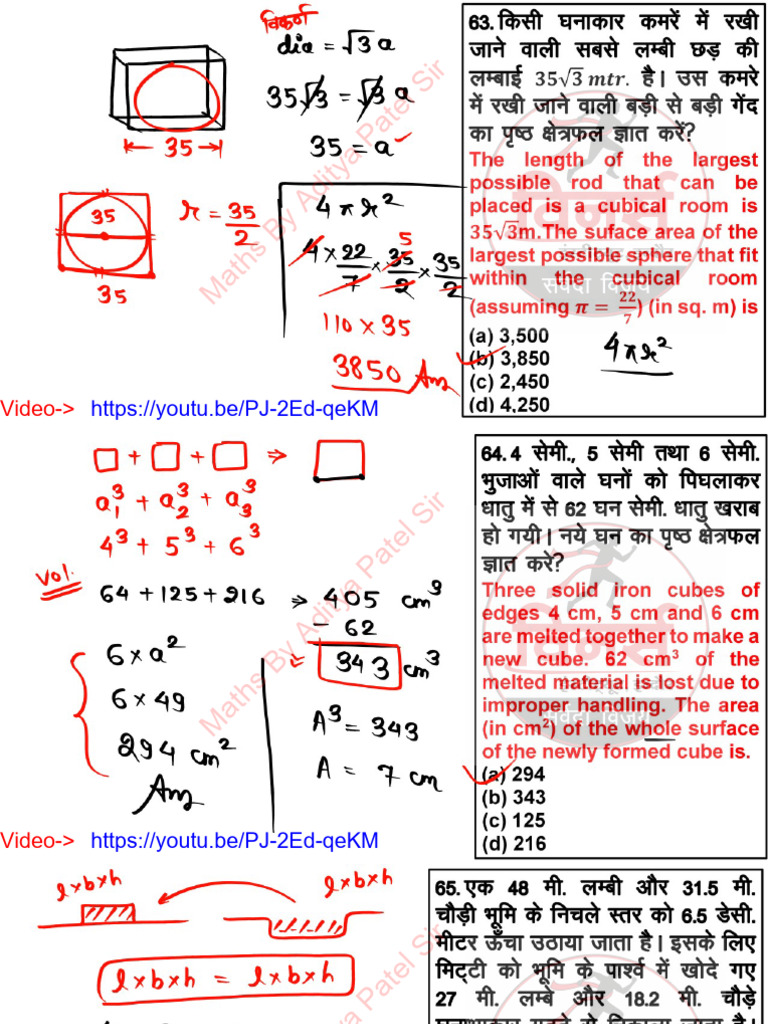 विकर्ण
dia = √3 a
35√3 = √3 a
35 = a
35
35
35
r = 35/2
4 π r²
4 × 22/7 × 35/2 × 35/2
5
110 × 35
3850 Ans
63. किसी घनाकार कमरें में रखी
जाने वाली सबसे लम्बी छड़ की
लम्बाई 35√3 mtr. है। उस कमरे
में रखी जाने वाली बड़ी से बड़ी गेंद
का पृष्ठ क्षेत्रफल ज्ञात करें?
The length of the largest
possible rod that can be
placed is a cubical room is
35√3m.The suface area of the
largest possible sphere that fit
within the cubical room
(assuming π = 22/7) (in sq. m) is
(a) 3,500
(b) 3,850
(c) 2,450
(d) 4,250
4 π r²
Maths By Aditya Patel Sir
विनर्स
Video-> https://youtu.be/PJ-2Ed-qeKM
□ + □ + □ ⇒ □
a₁³ + a₂³ + a₃³
4³ + 5³ + 6³
Vol.
64 + 125 + 216 ⇒ 405 cm³
- 62
343 cm³
6 × a²
6 × 49
294 cm²
Ans
A³ = 343
A = 7 cm
64. 4 सेमी., 5 सेमी तथा 6 सेमी.
भुजाओं वाले घनों को पिघलाकर
धातु में से 62 घन सेमी. धातु खराब
हो गयी। नये घन का पृष्ठ क्षेत्रफल
ज्ञात करें?
Three solid iron cubes of
edges 4 cm, 5 cm and 6 cm
are melted together to make a
new cube. 62 cm³ of the
melted material is lost due to
improper handling. The area
(in cm²) of the whole surface
of the newly formed cube is.
(a) 294
(b) 343
(c) 125
(d) 216
Maths By Aditya Patel Sir
विनर्स
Video-> https://youtu.be/PJ-2Ed-qeKM
l×b×h
l×b×h
l×b×h = l×b×h
65. एक 48 मी. लम्बी और 31.5 मी.
चौड़ी भूमि के निचले स्तर को 6.5 डेसी.
मीटर ऊँचा उठाया जाता है। इसके लिए
मिट्टी को भूमि के पार्श्व में खोदे गए
27 मी. लम्बे और 18.2 मी. चौड़े
Aditya Patel Sir